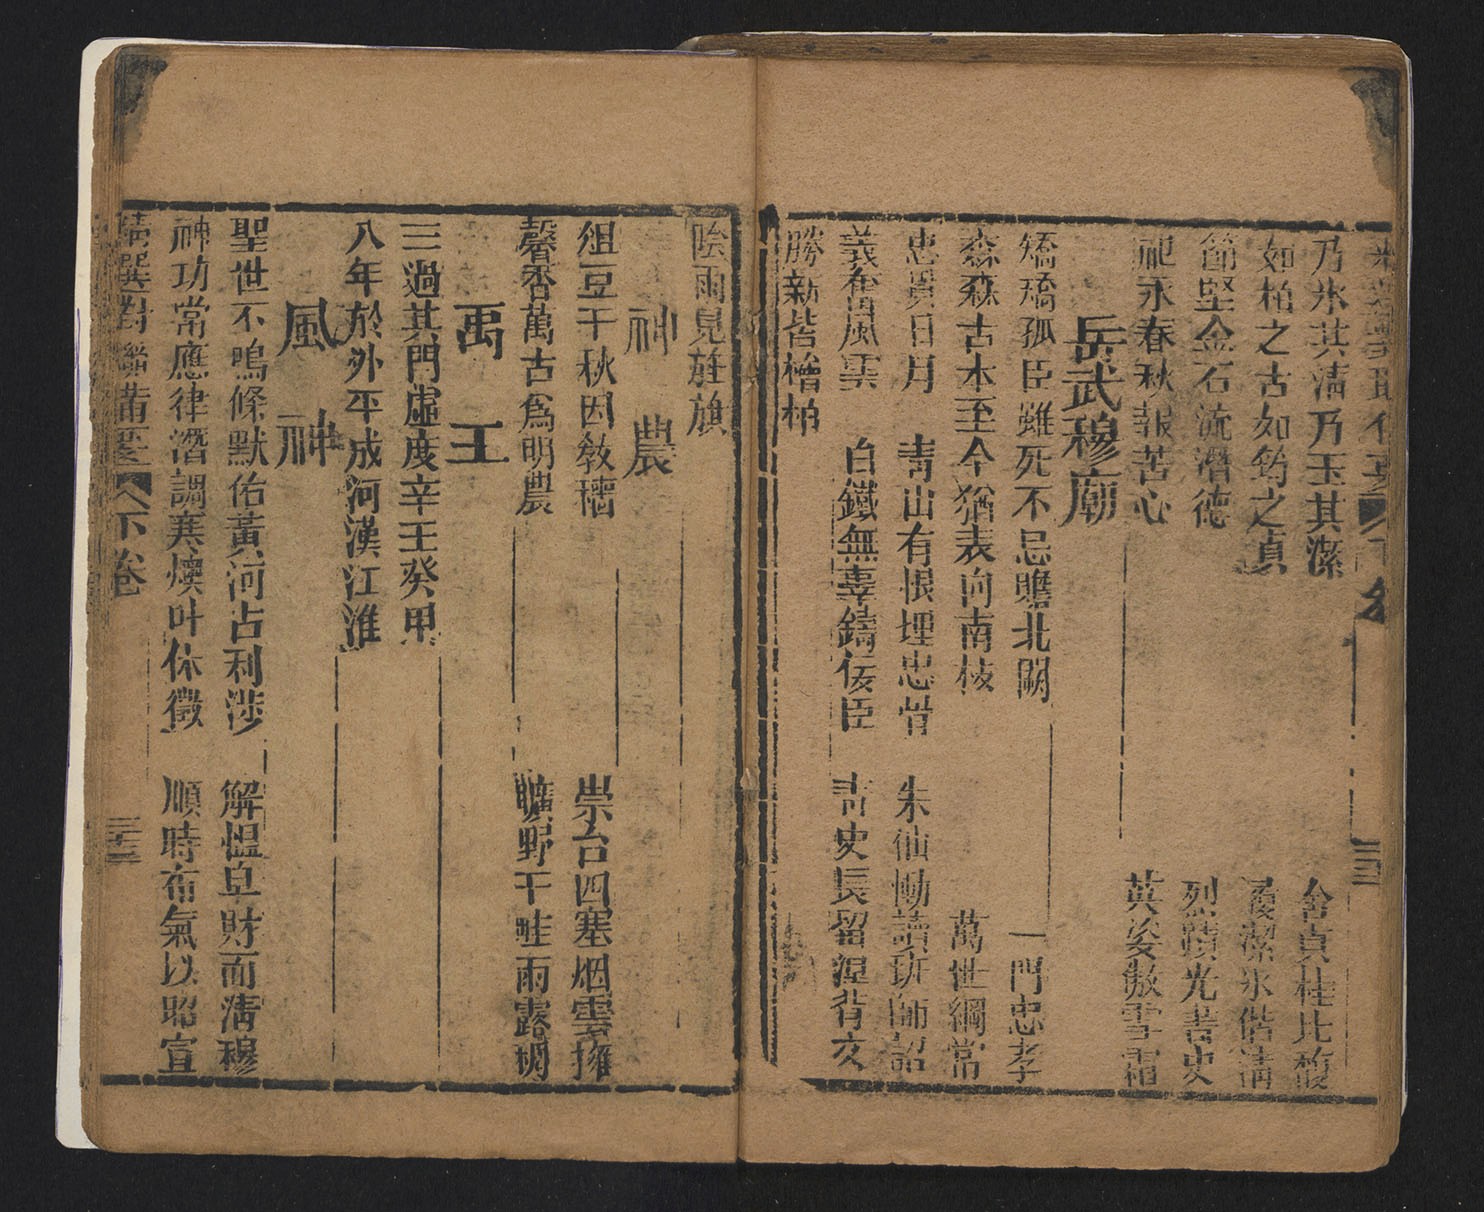 乃氷其清乃玉其潔　含貞桂比馥
如柏之古如筠之貞　履潔氷偕清
節堅金石流潛德　烈蹟光青史
祀永春秋報苦心　英姿傲雪霜
岳武穆廟
矯矯孤臣雖死不忘瞻北闕　一門忠孝
森森古木至今猶表向南枝　萬世綱常
忠貫日月　青山有恨埋忠骨　朱仙慟讀班師詔
義奮風雲　白鐵無辜鑄佞臣　青史長留涅背文
勝新皆檜柏
陰雨見旌旗
神農
俎豆千秋因教穡　崇台四塞烟雲擁
馨香萬古爲明農　曠野千畦雨露稠
禹王
三過其門虛度辛壬癸甲
八年於外平成河漢江淮
風神
聖世不鳴條默佑黃河占利涉　解慍阜財而淸穆
神功常應律潛調寒燠叶休徵　順時布氣以昭宣
精選對聯備要　下卷　三十三